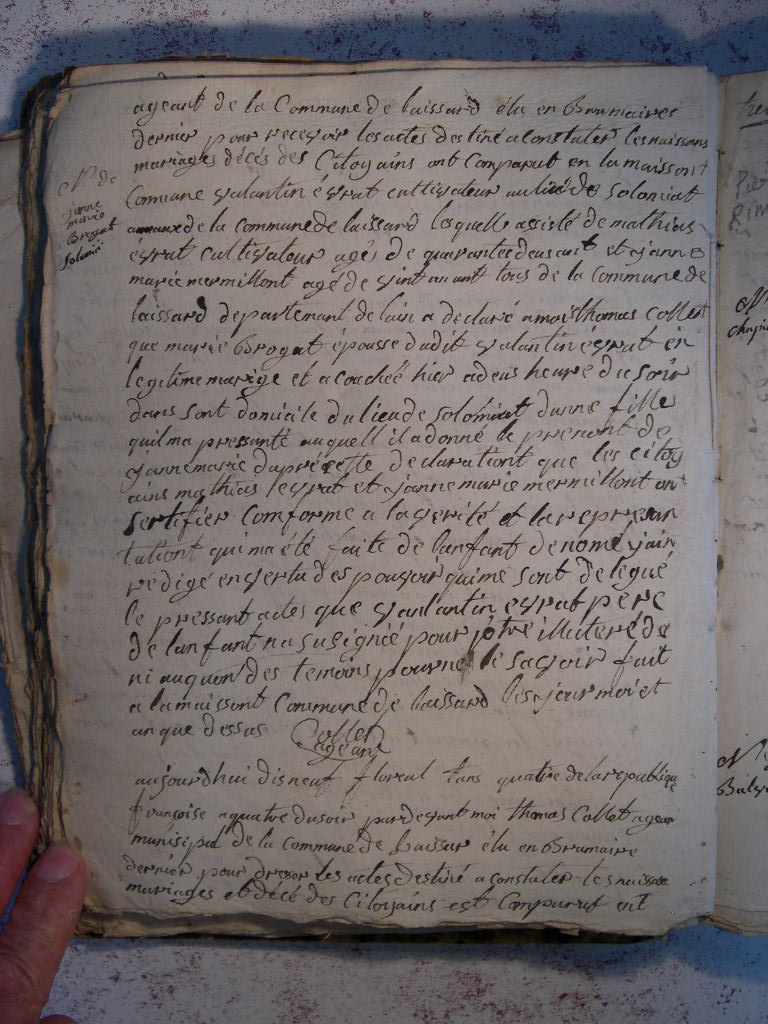 ageant de la Commune de laissard élu en Brumaires
dernier pour recevoir les actes destiné a constater les naissans
mariages décés des Citoyains ont Comparut en la maissont
Commune valantin évrat cultivateur au lieu de Soloniat
N de
janne
marie
Brogat
annaxe de la Commune de laissard lesquelle assisté de mathias
évrat cultivateur agés de quarantedeusant et janne
marie mermillont agé de vint au ant tous de la Commune de
laissard departemant de lain a declaré a moi thomas Collet
que marie Brogat épousse dudit valantin évrat en
legitime marige et acouchée hier a deus heure du soir
dans sont domicile du lieu de Solomiat dunne fille
quil ma pressanté auquell il a donné le prenont de
janne marie dapré cette declarationt que les citoy
ains mathias levrat et janne marie mermillont ont
sertifier comforme a la verité et la represan
tationt qui ma été faite de lanfant denomé jain
redigé en vertu des pouvoir qui me sont delegué
le pressant actes que vanlantin evrat pere
de lanfant na susignéé pour être illiteré de
ni auquon des temoins pour ne le savoir fait
a la maissont Commune de laissard les jour moi et
an que dessus Collet
ageant
aujourdhui disneuf floreal lans quatre de la republique
françoise a quatre du soir pardevant moi thomas Collet agean
munisipal de la Commune de Laissar élu en Brumaire
dernier pour dresser les actes destiné a constater les naissase
mariages et décé des Citoyains est Comparut ent